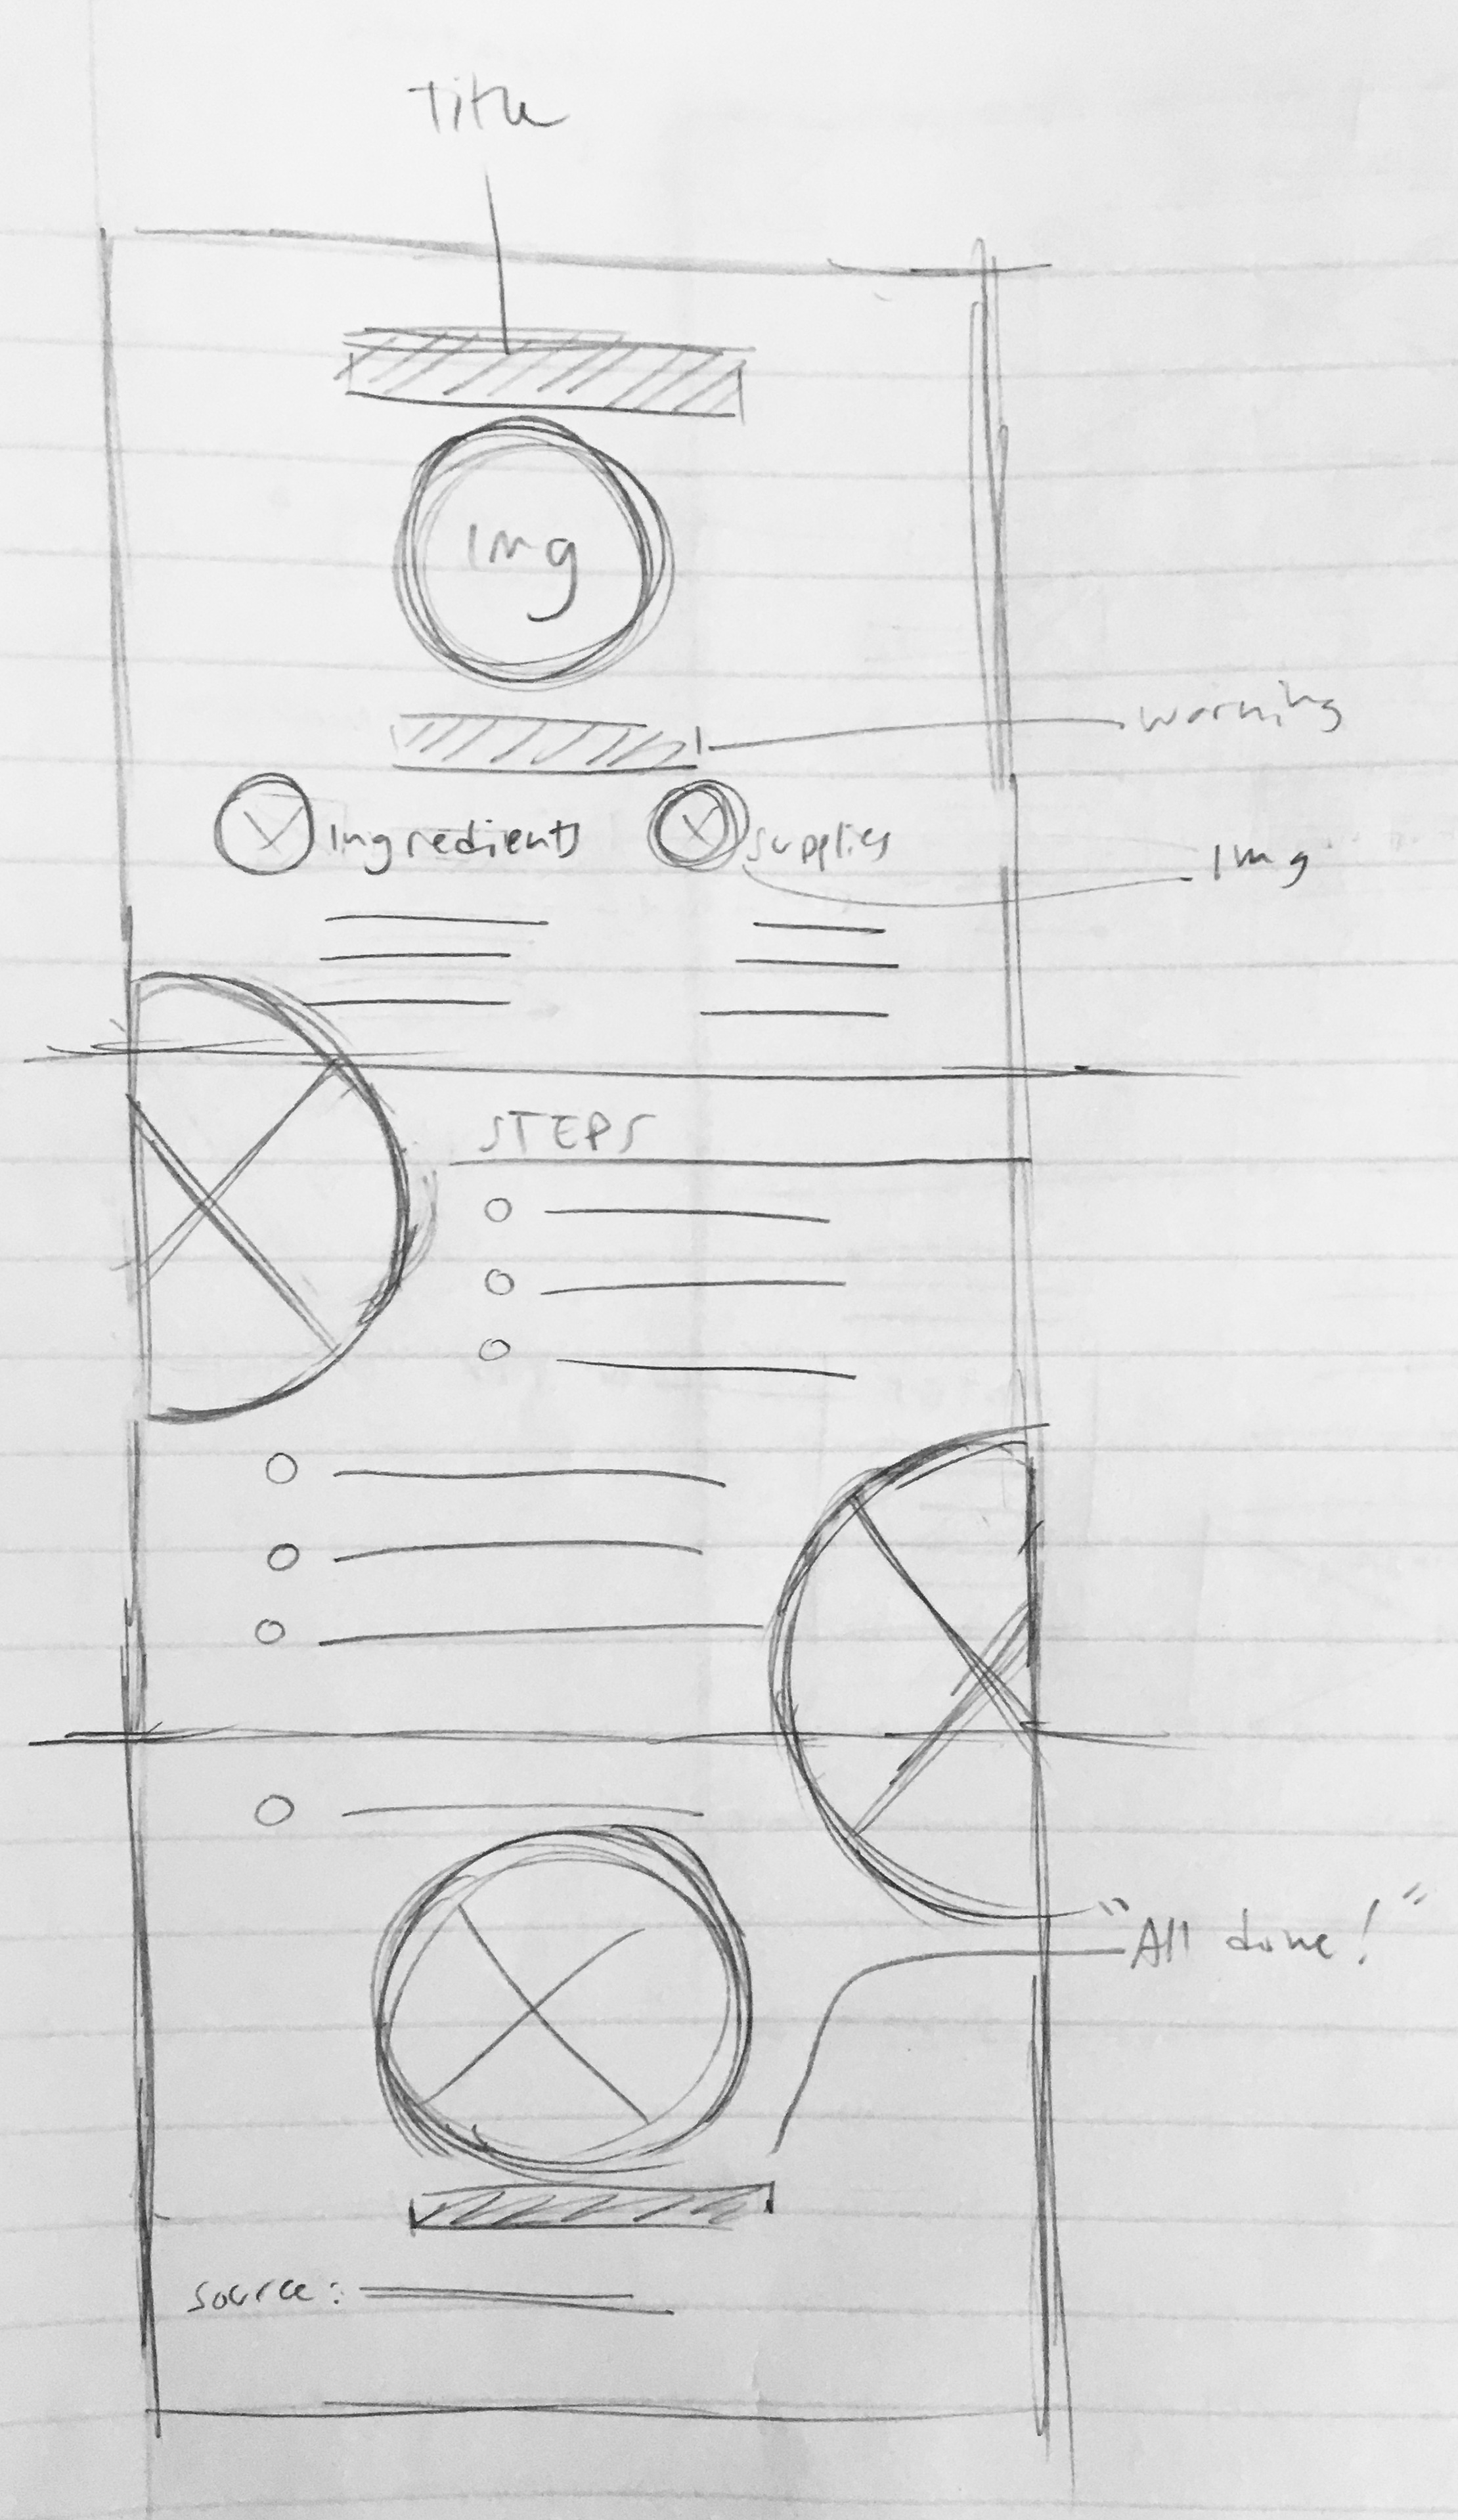 Title
Img
Warning
Ingredients
supplies
Img
STEPS
"All done!"
source: